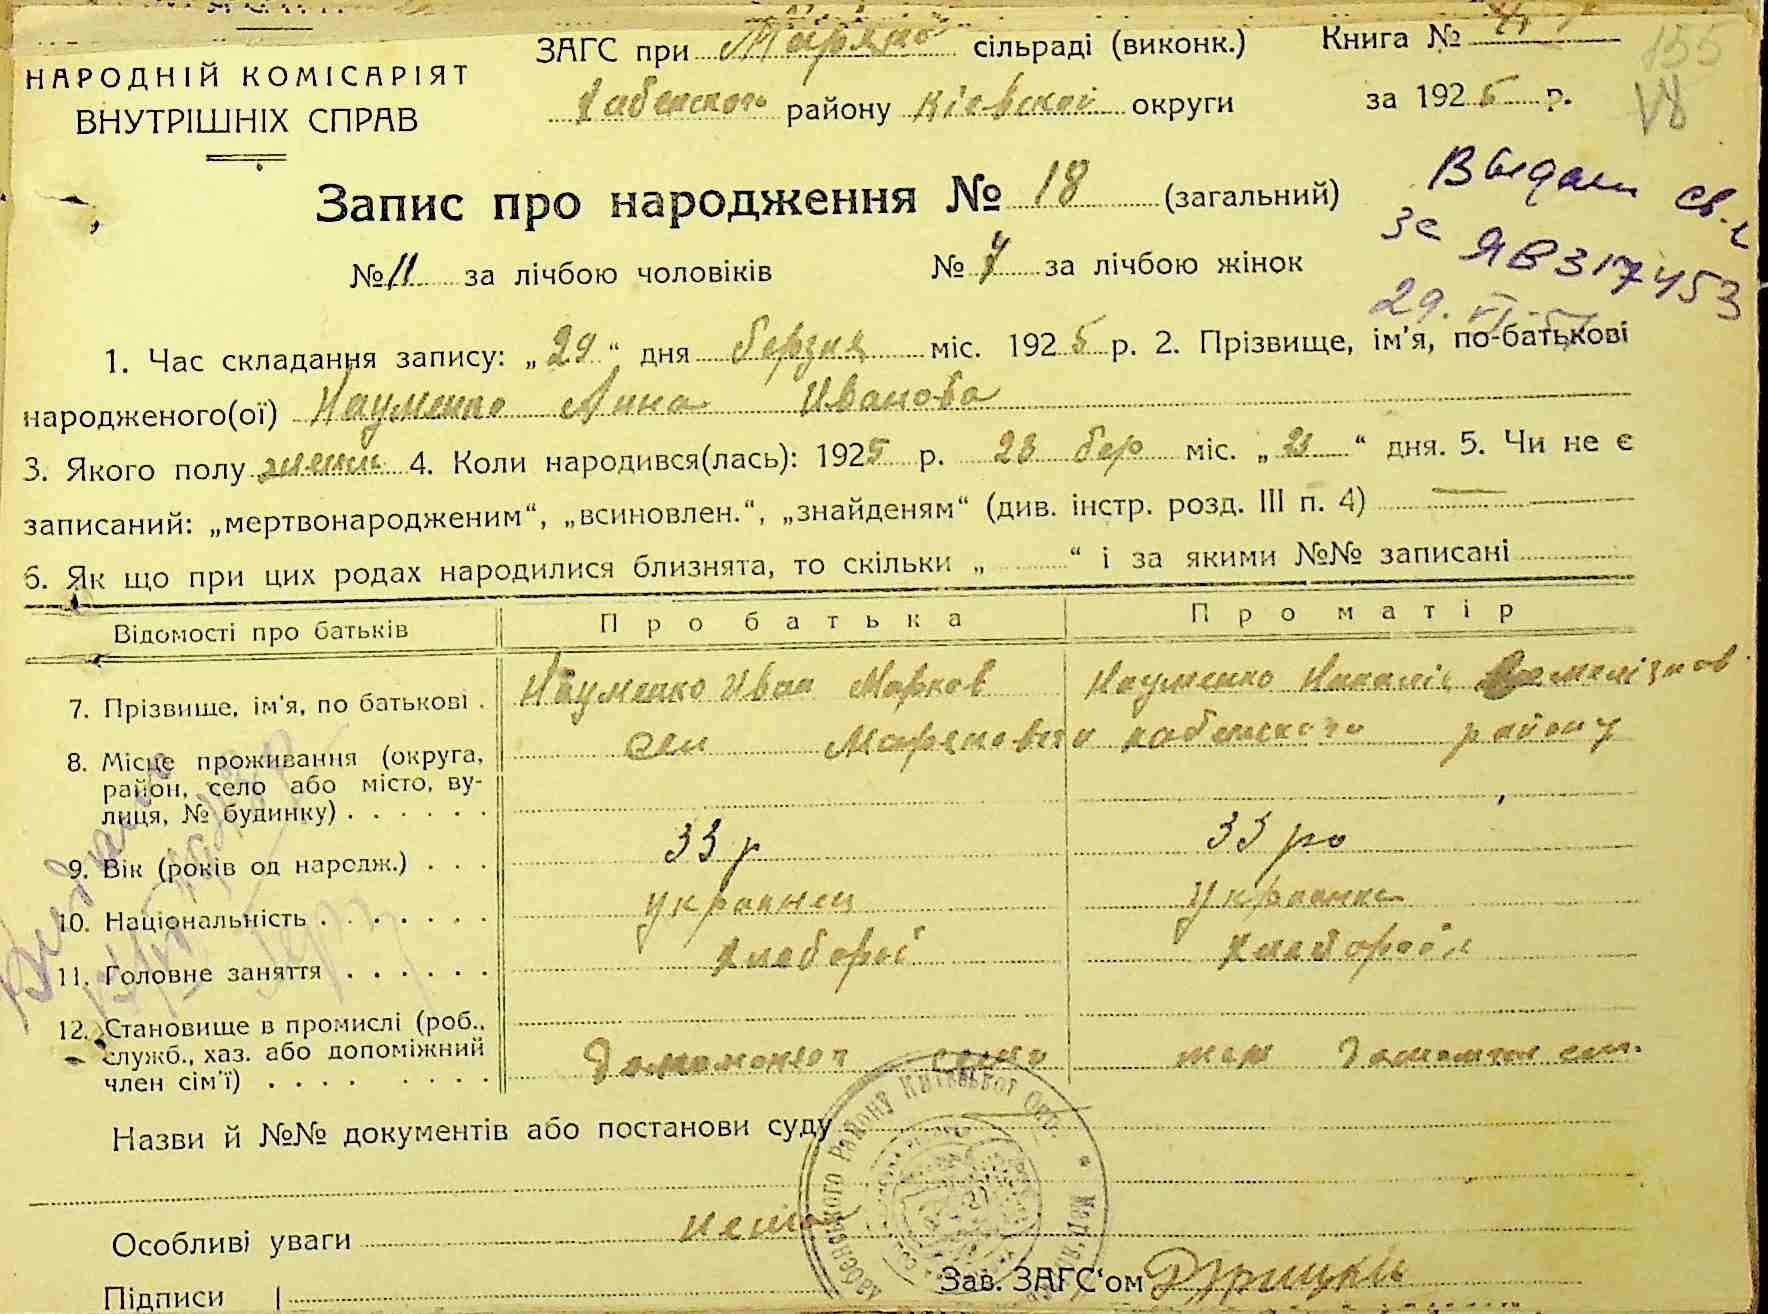 НАРОДНІЙ КОМІСАРІЯТ
ВНУТРІШНІХ СПРАВ
ЗАГС при сільраді (виконк.)
Хабенского району Кіевской округи
Книга №
за 1925 р.
155
Запис про народження № 18 (загальний)
№ 11 за лічбою чоловіків № 7 за лічбою жінок
Выдан св-
за ЯВ317453
1. Час складання запису: „29“ дня березня міс. 1925 р. 2. Прізвище, ім'я, по-батькові
народженого(ої) Науменко Анна Иванова
3. Якого полу женск 4. Коли народився(лась): 1925 р. 23 бер міс. „23“ дня. 5. Чи не є
записаний: „мертвонародженим“, „всиновлен.“, „знайденям“ (див. інстр. розд. III п. 4)
6. Як що при цих родах народилися близнята, то скільки „ “ і за якими №№ записані
Відомості про батьків Про батька Про матір
7. Прізвище, ім'я, по батькові . Науменко Иван Марков Науменко Наталія
8. Місце проживання (округа, район, село або місто, вулиця, № будинку) . . . . . . сел хабенского району
9. Вік (років од народж.) . . . 33 р 33 ро
10. Національність . . . . . . . украинец украинка
11. Головне заняття . . . . . . хлебороб
12. Становище в промислі (роб., служб., хаз. або допоміжний член сім'ї) . . . .
Назви й №№ документів або постанови суду
Особливі уваги нема
Підписи
Зав. ЗАГС'ом
РАЙОНУ КИЇВСЬКОЇ ОКР.